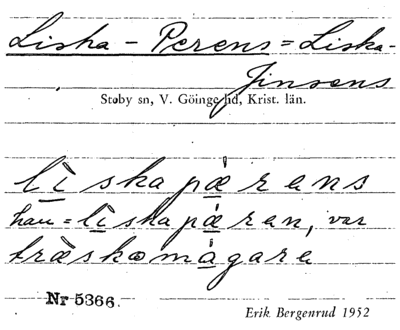 Liska-Perens = Liska-
Jinsens
Stoby sn, V. Göinge hd, Krist. län.
lìskapǽrens
han = lìskapǽren, var
träskomágare
Nr 5366.
Erik Bergenrud 1952